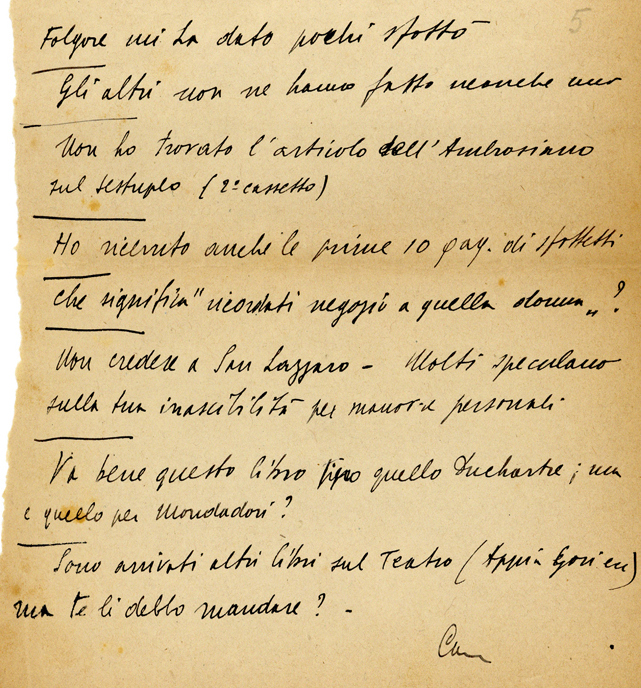 5
Folgore mi ha dato pochi sfottò
Gli altri non ne hanno fatto neanche uno
Non ho trovato l'articolo dell'Ambrosiano
sul sestuplo (2º cassetto)
Ho ricevuto anche le prime 10 pag. di sfottetti
che significa "ricordati negozii a quella donna„?
Non credere a San Lazzaro - Molti speculano
sulla tua irascibilità per manovre personali
Va bene questo libro tipo quello Duchartre; ma
e quello per Mondadori?
Sono arrivati altri libri sul Teatro (Appia
ma te li debbo mandare? -